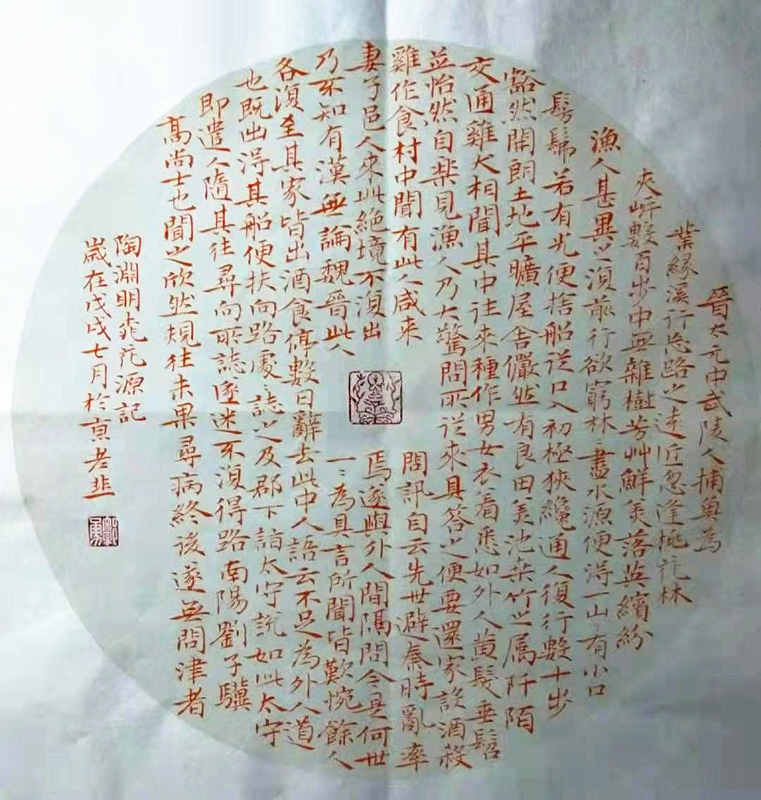 晉太元中武陵人捕魚為
業緣溪行忘路之遠近忽逢桃花林
夾岸數百步中無雜樹芳艸鮮美落英繽紛
漁人甚異之復前行欲窮林〻盡水源便得一山〻有小口
髣髴若有光便捨船從口入初極狹纔通人復行數十步
豁然開朗土地平曠屋舍儼然有良田美池桑竹之属阡陌
交通雞犬相聞其中往來種作男女衣着悉如外人黄髮垂髫
並怡然自樂見漁人乃大驚問所從來具答之便要還家設酒殺
雞作食村中聞有此人咸来問訊自云先世避秦時亂率
妻子邑人來此絶境不復出焉遂與外人間隔問今是何世
乃不知有漢無論魏晉此人一〻為具言所聞皆歎惋餘人
各復至其家皆出酒食停數日辭去此中人語云不足為外人道
也既出得其船便扶向路處〻誌之及郡下詣太守説如此太守
即遣人隨其往尋向所誌遂迷不復得路南陽劉子驥
高尚士也聞之欣然規往未果尋病終後遂無問津者
陶淵明桃花源記
歲在戊戌七月於京老韭